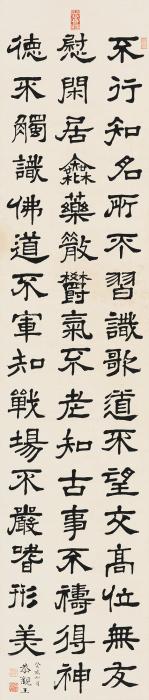 不行知名所不習識歌道不望交高位無友
慰閑居𨤲藥散鬱氣不老知古事不禱得神
德不觸識佛道不軍知戰場不嚴嗜形美
恭親王